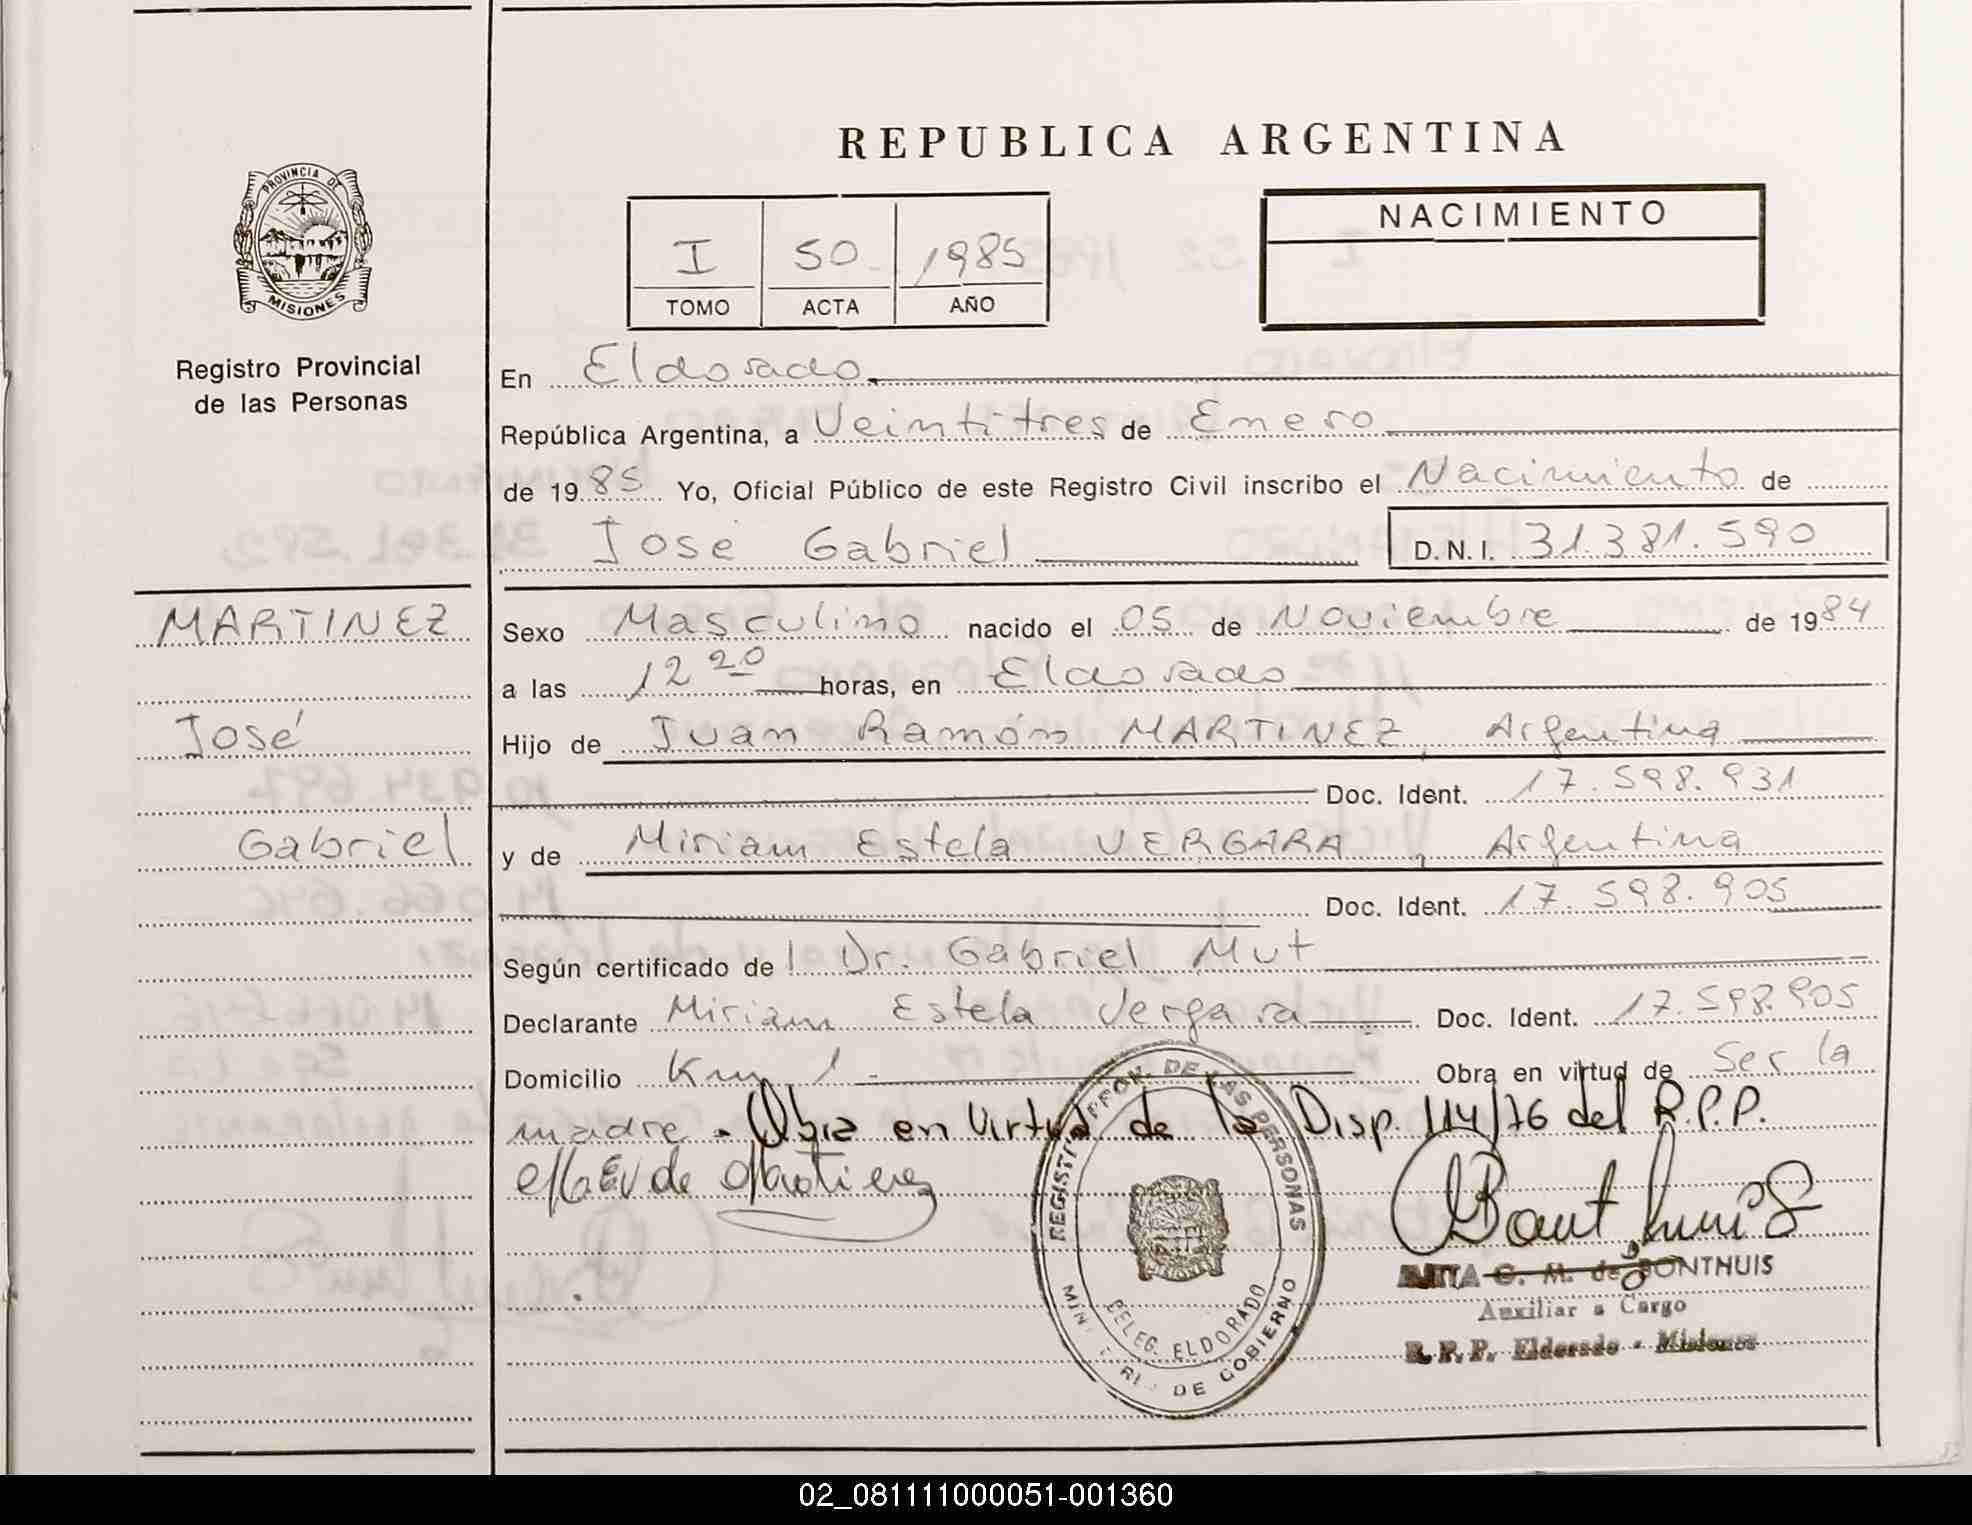 REPUBLICA ARGENTINA
PROVINCIA DE
MISIONES
Registro Provincial
de las Personas
I 50 1985
TOMO ACTA AÑO
NACIMIENTO
En Eldorado
República Argentina, a Veintitres de Enero
de 1985 Yo, Oficial Público de este Registro Civil inscribo el Nacimiento de
José Gabriel D.N.I. 31.381.590
MARTINEZ
José
Gabriel
Sexo Masculino nacido el 05 de Noviembre de 1984
a las 12 20 horas, en Eldorado
Hijo de Juan Ramón MARTINEZ, Argentina
Doc. Ident. 17.598.931
y de Miriam Estela VERGARA, Argentina
Doc. Ident. 17.598.905
Según certificado de Dr. Gabriel Mut
Declarante Miriam Estela Vergara Doc. Ident. 17.598.905
Domicilio Km 1 - Obra en virtud de Ser la
madre - Obra en Virtud de la Disp. 114/76 del R.P.P.
MEV de Martinez
DE LAS PERSONAS
DELEG. ELDORADO
DE GOBIERNO
de BONTHUIS
Auxiliar a Cargo
R.P.P. Eldorado - Misiones
02_081111000051-001360